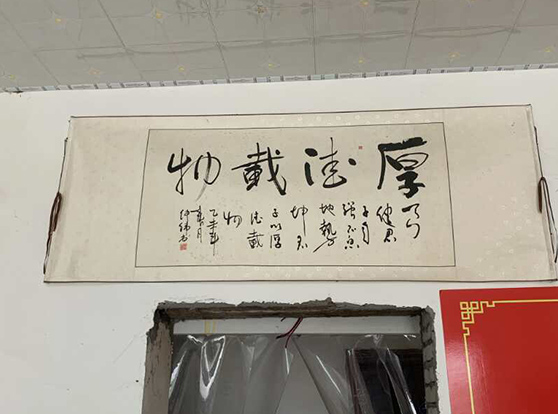 厚德載物
天行
健君
子自
強不息
地勢
坤君
子以厚
德載
物
乙未年